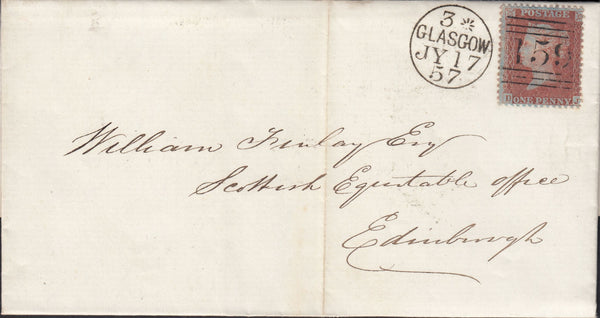 3
GLASGOW
JY 17
57
POSTAGE
159
ONE PENNY
William Finlay Esq
Scottish Equitable office
Edinburgh